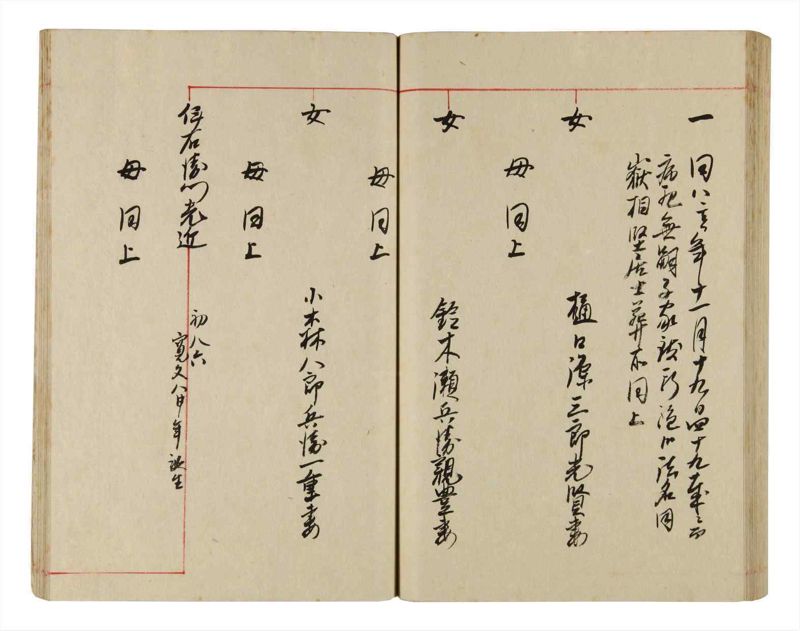 一 同八亥年十一月十九日四十九歳ニ而
病死無嗣子家跡断絶〆法名同
嶽相堅居士葬所同上
女
樋口源三郎光賢妻
母同上
女
鈴木瀬兵衛親豊妻
母同上
女
小木林八郎兵衛一重妻
母同上
伝右衛門光近
初八六
寛文八申年誕生
母同上